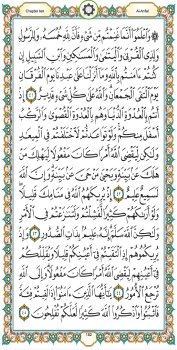 Al-Anfal
۞ وَاعْلَمُوا أَنَّمَا غَنِمْتُم مِّن شَيْءٍ فَأَنَّ لِلَّهِ خُمُسَهُ وَلِلرَّسُولِ
وَلِذِي الْقُرْبَىٰ وَالْيَتَامَىٰ وَالْمَسَاكِينِ وَابْنِ السَّبِيلِ إِن
كُنتُمْ آمَنتُم بِاللَّهِ وَمَا أَنزَلْنَا عَلَىٰ عَبْدِنَا يَوْمَ الْفُرْقَانِ
يَوْمَ الْتَقَى الْجَمْعَانِ وَاللَّهُ عَلَىٰ كُلِّ شَيْءٍ قَدِيرٌ ٤١
إِذْ أَنتُم بِالْعُدْوَةِ الدُّنْيَا وَهُم بِالْعُدْوَةِ الْقُصْوَىٰ وَالرَّكْبُ
أَسْفَلَ مِنكُمْ وَلَوْ تَوَاعَدتُّمْ لَاخْتَلَفْتُمْ فِي الْمِيعَادِ
وَلَٰكِن لِّيَقْضِيَ اللَّهُ أَمْرًا كَانَ مَفْعُولًا لِّيَهْلِكَ مَنْ
هَلَكَ عَن بَيِّنَةٍ وَيَحْيَىٰ مَنْ حَيَّ عَن بَيِّنَةٍ وَإِنَّ اللَّهَ
لَسَمِيعٌ عَلِيمٌ ٤٢ إِذْ يُرِيكَهُمُ اللَّهُ فِي مَنَامِكَ قَلِيلًا
وَلَوْ أَرَاكَهُمْ كَثِيرًا لَّفَشِلْتُمْ وَلَتَنَازَعْتُمْ فِي الْأَمْرِ
وَلَٰكِنَّ اللَّهَ سَلَّمَ إِنَّهُ عَلِيمٌ بِذَاتِ الصُّدُورِ ٤٣ وَإِذْ
يُرِيكُمُوهُمْ إِذِ الْتَقَيْتُمْ فِي أَعْيُنِكُمْ قَلِيلًا وَيُقَلِّلُكُمْ
فِي أَعْيُنِهِمْ لِيَقْضِيَ اللَّهُ أَمْرًا كَانَ مَفْعُولًا وَإِلَى اللَّهِ
تُرْجَعُ الْأُمُورُ ٤٤ يَا أَيُّهَا الَّذِينَ آمَنُوا إِذَا لَقِيتُمْ فِئَةً
فَاثْبُتُوا وَاذْكُرُوا اللَّهَ كَثِيرًا لَّعَلَّكُمْ تُفْلِحُونَ ٤٥
182